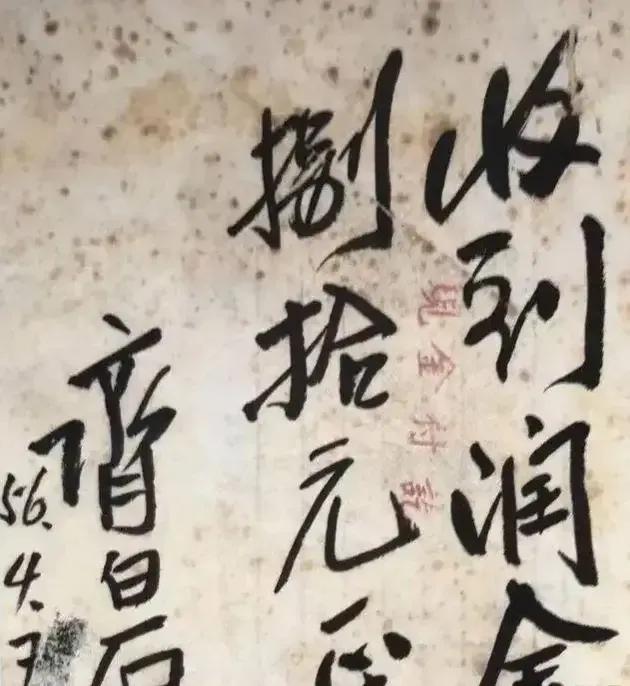 收到润金
捌拾元正
齊白石
56.4.7
现金付訖